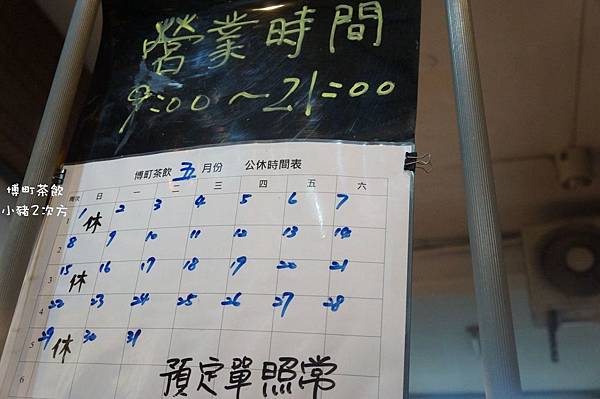 營業時間
9:00~21:00
博町茶飲 五 月份 公休時間表
週次 日 一 二 三 四 五 六
1 1 休 2 3 4 5 6 7
2 8 9 10 11 12 13 14
3 15 休 16 17 18 19 20 21
4 22 23 24 25 26 27 28
5 29 休 30 31
6
預定單照常
博町茶飲
小豬2次方